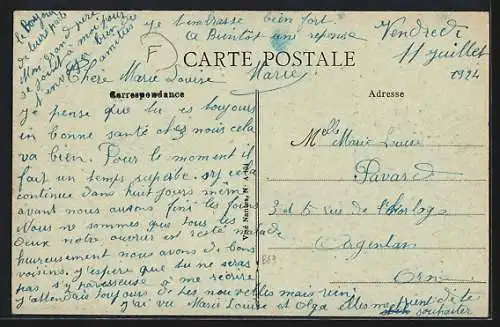 Je t'embrasse bien fort
A Bientôt une réponse
Marie
Vendredi
11 juillet
1924
Le Bonjour
de leurs parts
Mon grand-père
se joint à moi pour
t'envoyer bien
amitiés
F
CARTE POSTALE
Correspondance
Adresse
Chère Marie Louise
Je pense que tu es toujours
en bonne santé chez nous cela
va bien. Pour le moment il
fait un temps superbe si cela
continue dans huit jours même
avant nous aurons fini les foins
Nous ne sommes que tous les
deux notre ouvrier est resté malade
heureusement nous avons de bons
voisins. J'espère que tu ne seras
pas si paresseuse de me récrire
J'attendais toujours de tes nouvelles mais rien
J'ai vu Marie Louise et Olga elles me prient de te
souhaiter
Melle Marie Louise
Pavard
3 et 5 rue de l'horloge
Argentan
Orne